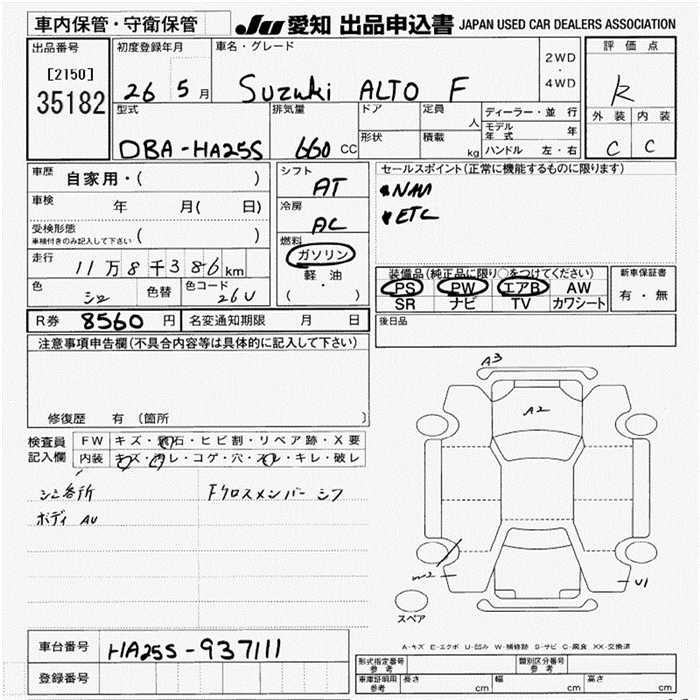 車内保管・守衛保管
JU 愛知 出品申込書 JAPAN USED CAR DEALERS ASSOCIATION
出品番号
[2150]
35182
初度登録年月
26 5月
車名・グレード
Suzuki ALTO F
2WD
・
4WD
評価点
R
外装 内装
C C
型式
DBA-HA25S
排気量
660 CC
ドア
形状
定員
人
積載
kg
ディーラー・並行
モデル年式 年
ハンドル 左・右
車歴 自家用・( )
車検 年 月( 日)
受検形態
車検付きのみ記入して下さい ( )
走行 11万8千386km
色 シロ 色替 色コード 26U
シフト AT
冷房 AC
燃料
ガソリン
軽油
( ・ )
セールスポイント(正常に機能するものに限ります)
・NAVI
・ETC
装備品(純正品に限り○をつけてください)
PS PW エアB AW
SR ナビ TV カワシート
新車保証書
有・無
R券 8560円 名変通知期限 月 日
後日品
注意事項申告欄(不具合内容等は具体的に記入して下さい)
修復歴 有(箇所 )
検査員記入欄
FW キズ・飛石・ヒビ割・リペア跡・X要
内装 キズ・汚レ・コゲ・穴・スレ・キレ・破レ
シミ各所
ボディ AU
Fクロスメンバー シフ
A3
A2
W2
U1
スペア
A-キズ E-エクボ U-凹み W-補修跡 S-サビ C-腐食 XX-交換済
車台番号 HA25S-937111
登録番号
形式指定番号 参考
類別区分番号 参考
車庫証明用 参考 長さ cm 幅 cm 高さ cm